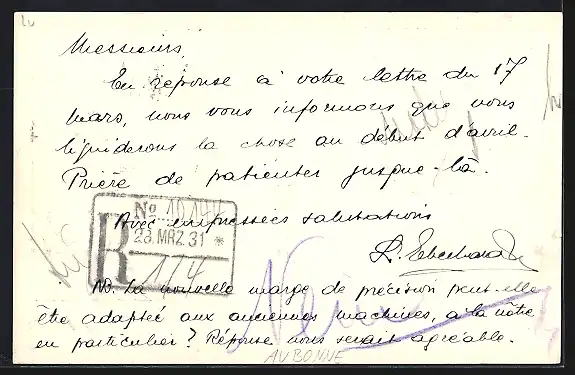 Messieurs,
En réponse à votre lettre du 17
mars, nous vous informons que nous
liquiderons la chose au début d'avril.
Prière de patienter jusque-là.
Avec empressées salutations
No
23. MRZ. 31 *
R
1/4
NB. La nouvelle marge de précision peut-elle
être adaptée aux anciennes machines, à la nôtre
en particulier? Réponse nous serait agréable.
AUBONNE